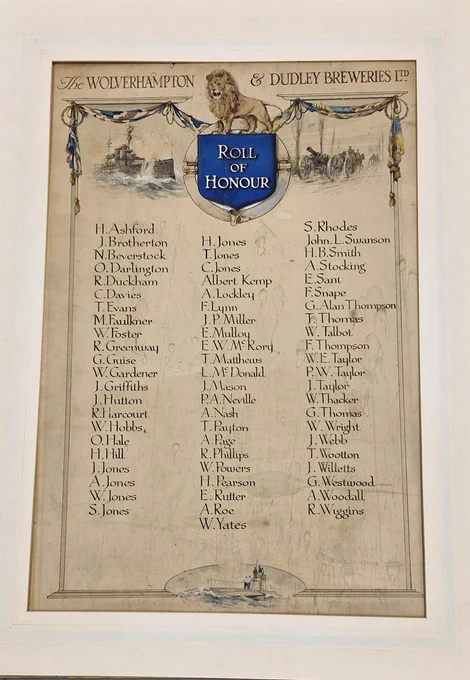 The WOLVERHAMPTON & DUDLEY BREWERIES LTD
ROLL
OF
HONOUR
H. Ashford
J. Brotherton
N. Beverstock
O. Darlington
R. Duckham
C. Davies
T. Evans
M. Faulkner
W. Foster
R. Greenway
G. Guise
W. Gardener
J. Griffiths
J. Hutton
R. Harcourt
W. Hobbs.
O. Hale
H. Hill
J. Jones
A. Jones
W. Jones
S. Jones
H. Jones
T. Jones
C. Jones
Albert Kemp
A. Lockley
F. Lynn
J. P. Miller
E. Mulloy
E. W. McRory
T. Matthews
L. McDonald
J. Mason
P. A. Neville
A. Nash
T. Payton
A. Page
R. Phillips
W. Powers
H. Pearson
E. Rutter
A. Roe
W. Yates
S. Rhodes
John. L. Swanson
H. B. Smith
A. Stocking
E. Sant
F. Snape
G. Alan Thompson
T. Thomas
W. Talbot
F. Thompson
W. E. Taylor
P. W. Taylor
J. Taylor
W. Thacker
G. Thomas
W. Wright
J. Webb
T. Wootton
J. Willetts
G. Westwood
A. Woodall
R. Wiggins